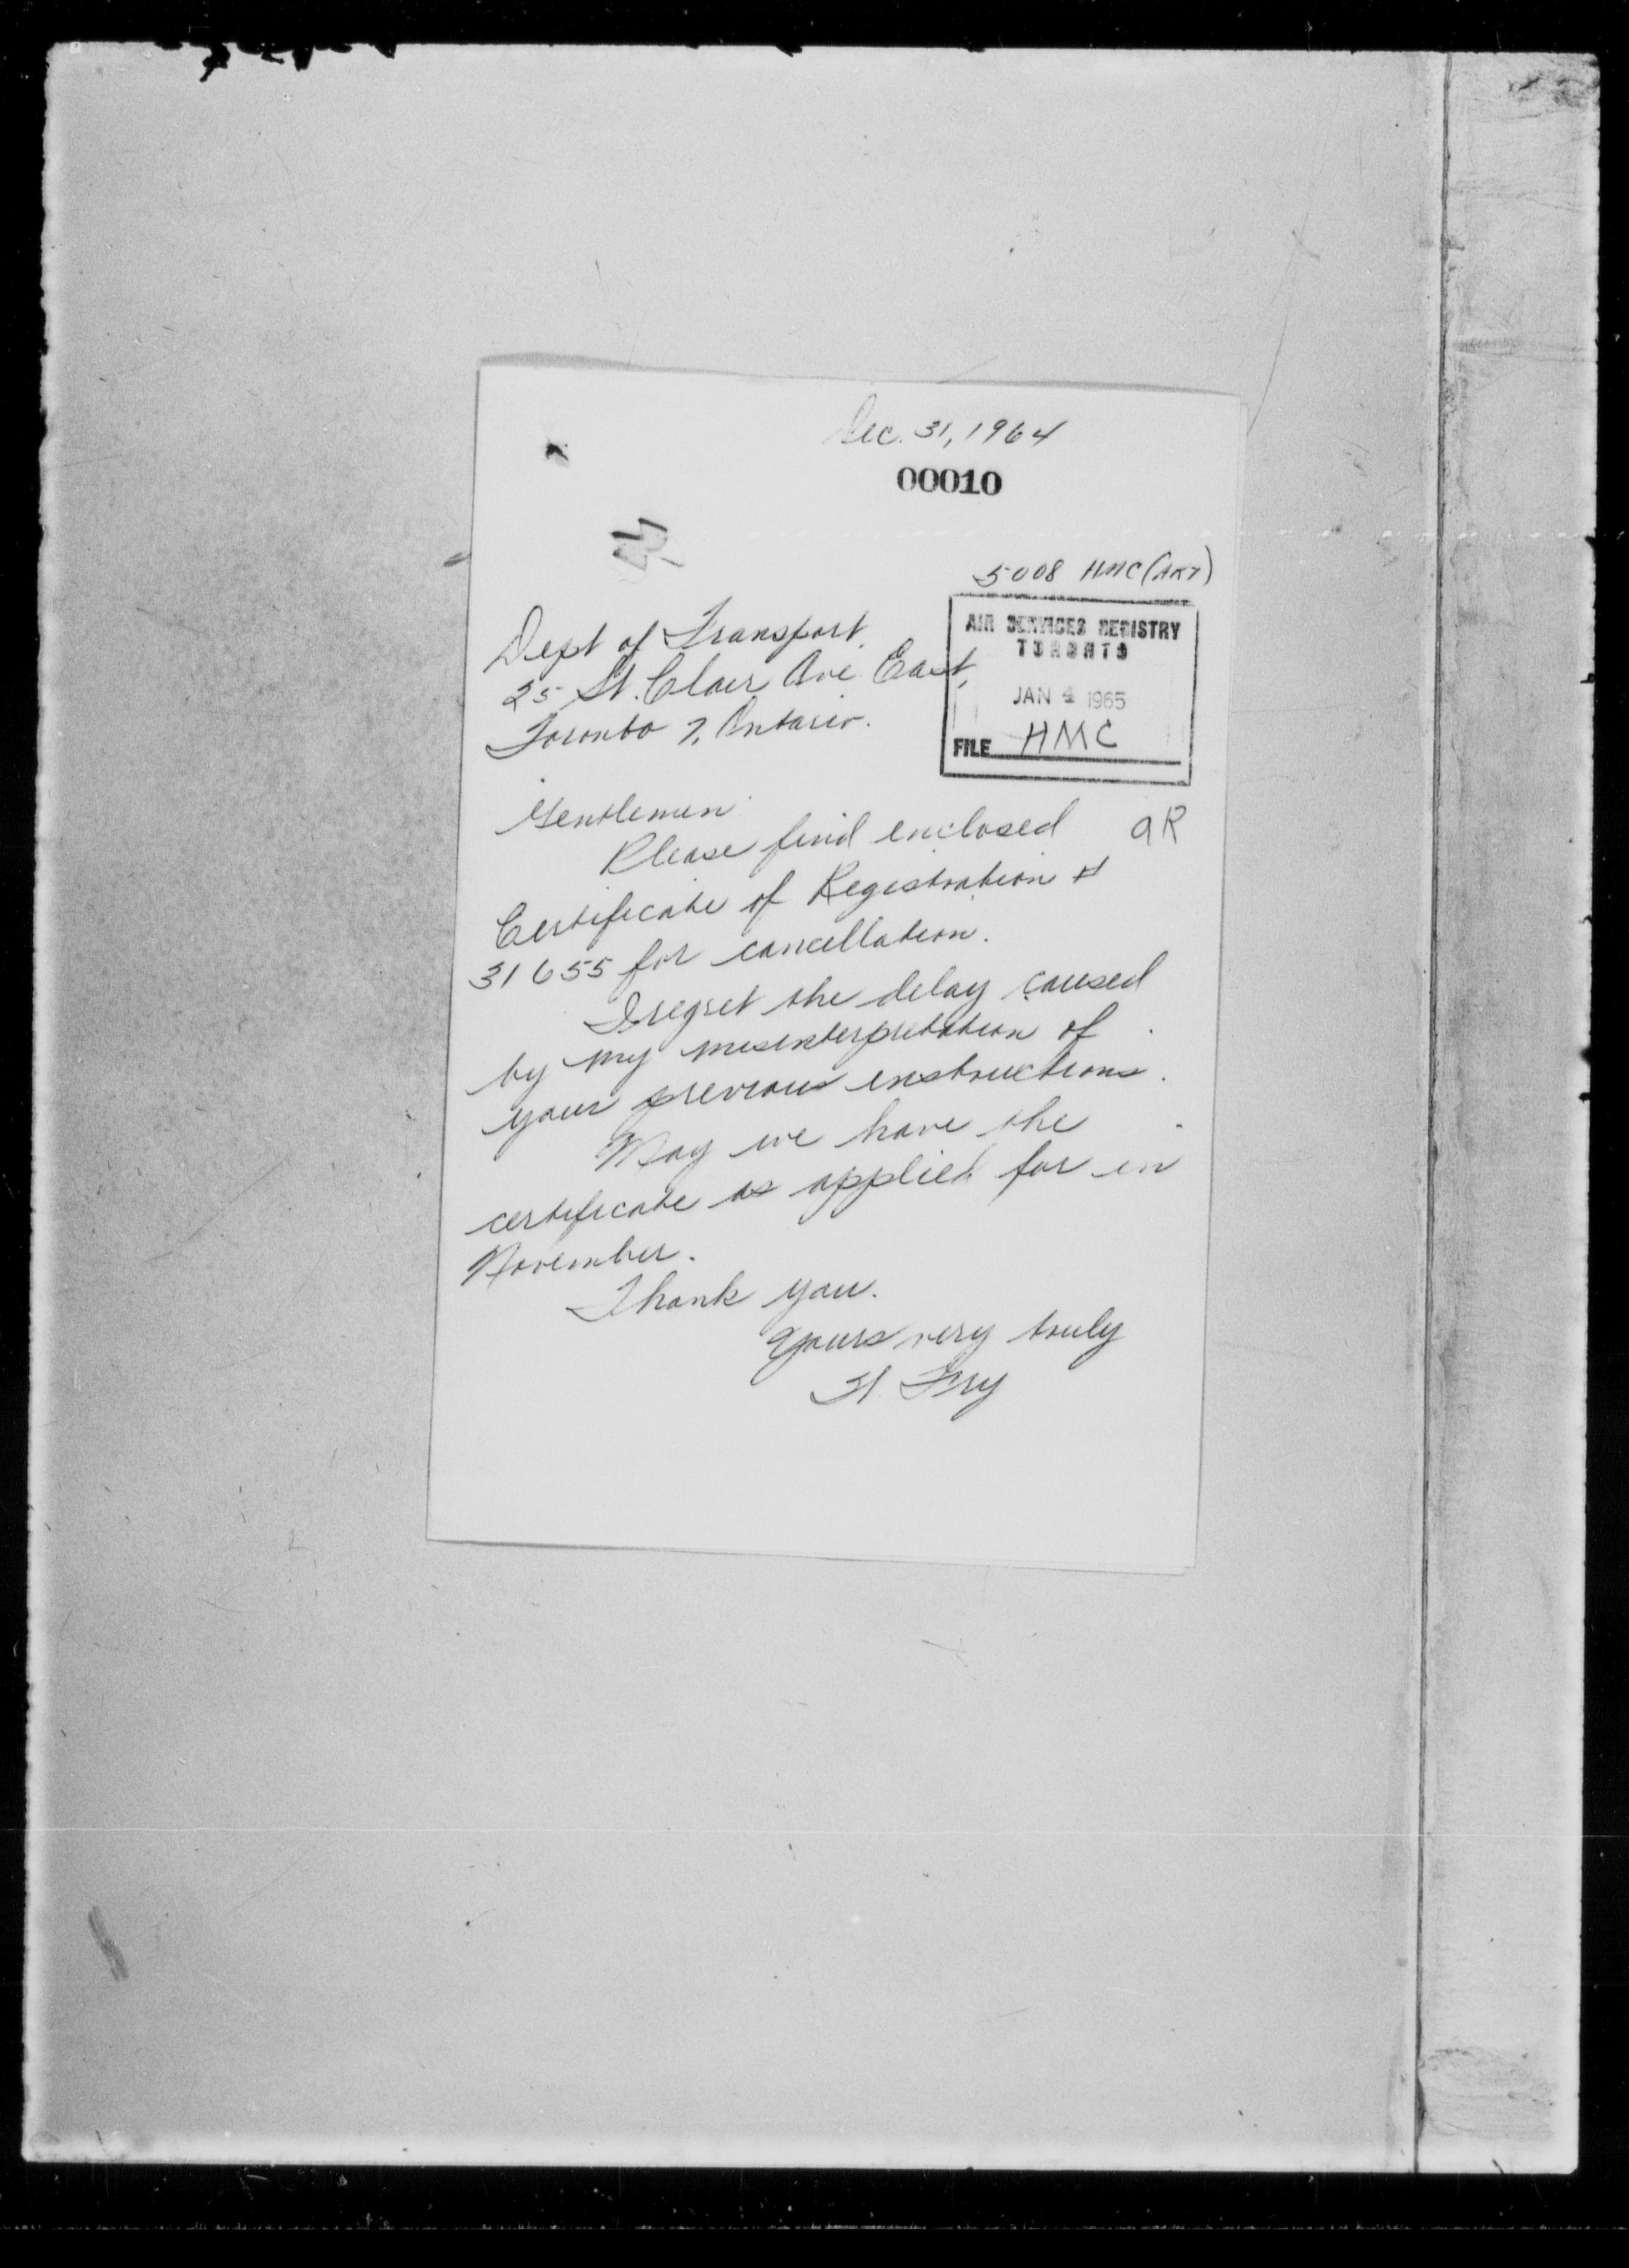 Dec. 31, 1964
00010
5008 HMC (AR7)
AIR SERVICES REGISTRY
TORONTO
JAN 4 1965
FILE HMC
Dept of Transport,
25 St. Clair Ave East,
Toronto 7, Ontario.
Gentlemen:
Please find enclosed
aR
Certificate of Registration #
31655 for cancellation.
I regret the delay caused
by my misinterpretation of
your previous instructions.
May we have the
certificate as applied for in
November.
Thank you.
Yours very truly
H. Fry